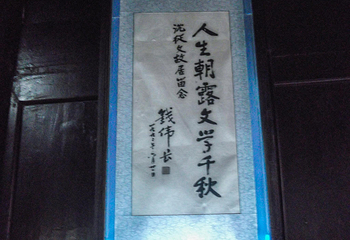 人生朝露文学千秋
沉从文故居留念
钱伟长